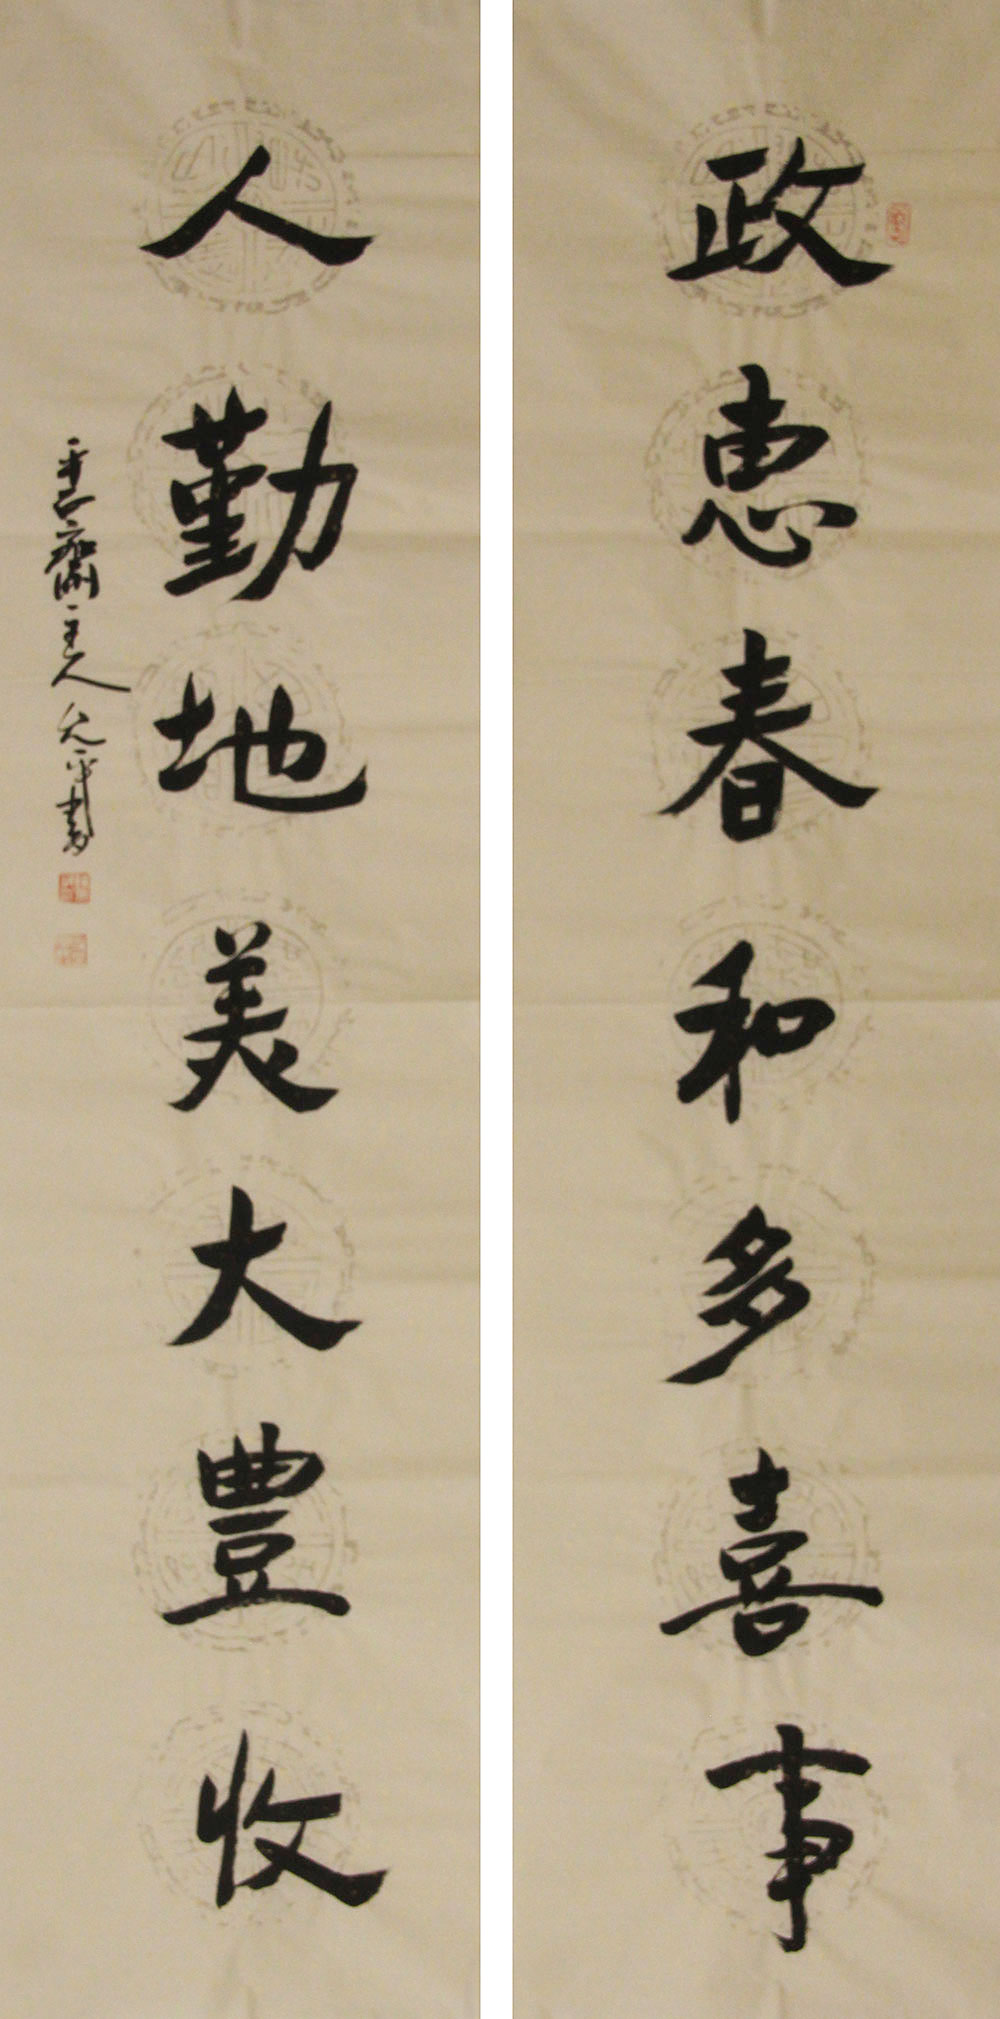 政惠春和多喜事
人勤地美大豐收
主人允平書